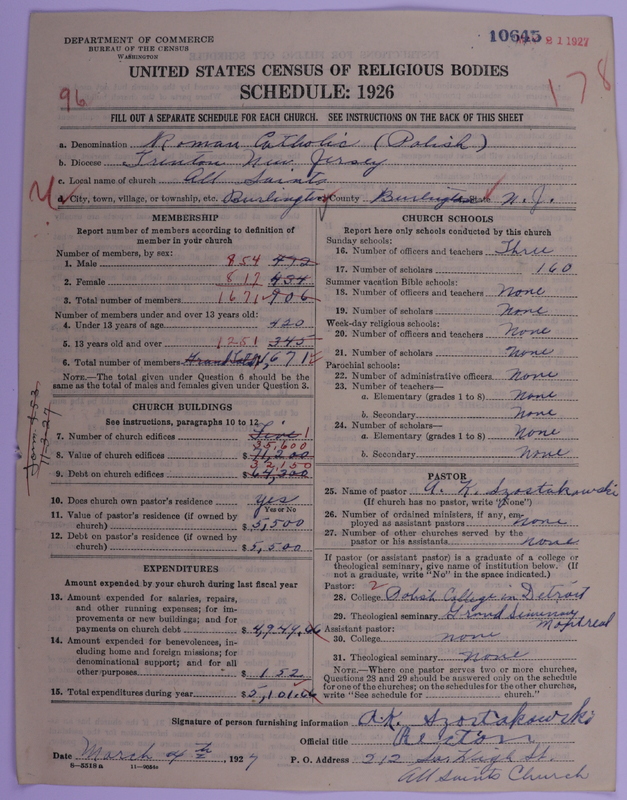 DEPARTMENT OF COMMERCE
BUREAU OF THE CENSUS
WASHINGTON
10645
1927
UNITED STATES CENSUS OF RELIGIOUS BODIES
SCHEDULE: 1926
96
178
FILL OUT A SEPARATE SCHEDULE FOR EACH CHURCH. SEE INSTRUCTIONS ON THE BACK OF THIS SHEET
a. Denomination Roman Catholic (Polish)
b. Diocese Trenton New Jersey
c. Local name of church All Saints
d. City, town, village, or township, etc. Burlington County Burlington State N. J.
MEMBERSHIP
Report number of members according to definition of member in your church
Number of members, by sex:
1. Male 854 472
2. Female 817 434
3. Total number of members 1671 906
Number of members under and over 13 years old:
4. Under 13 years of age 420
5. 13 years old and over 1251 345
6. Total number of members Grand Total 1,671
NOTE.—The total given under Question 6 should be the same as the total of males and females given under Question 3.
CHURCH BUILDINGS
See instructions, paragraphs 10 to 12
7. Number of church edifices Five 1
8. Value of church edifices $ 35,600 71,200
9. Debt on church edifices $ 32,150 64,300
Form 453
11-3-27
10. Does church own pastor's residence yes
Yes or No
11. Value of pastor's residence (if owned by church) $ 5,500
12. Debt on pastor's residence (if owned by church) $ 5,500
EXPENDITURES
Amount expended by your church during last fiscal year
13. Amount expended for salaries, repairs, and other running expenses; for improvements or new buildings; and for payments on church debt $ 4,949.06
14. Amount expended for benevolences, including home and foreign missions; for denominational support; and for all other purposes $ 152
15. Total expenditures during year $ 5,101.06
CHURCH SCHOOLS
Report here only schools conducted by this church
Sunday schools:
16. Number of officers and teachers Three
17. Number of scholars 160
Summer vacation Bible schools:
18. Number of officers and teachers None
19. Number of scholars None
Week-day religious schools:
20. Number of officers and teachers None
21. Number of scholars None
Parochial schools:
22. Number of administrative officers None
23. Number of teachers—
a. Elementary (grades 1 to 8) None
b. Secondary None
24. Number of scholars—
a. Elementary (grades 1 to 8) None
b. Secondary None
PASTOR
25. Name of pastor A. K. Szostakowski
(If church has no pastor, write "None")
26. Number of ordained ministers, if any, employed as assistant pastors none
27. Number of other churches served by the pastor or his assistants none
If pastor (or assistant pastor) is a graduate of a college or theological seminary, give name of institution below. (If not a graduate, write "No" in the space indicated.)
Pastor: 2
28. College Polish College in Detroit
29. Theological seminary Grand Seminary Montreal
Assistant pastor:
30. College none
31. Theological seminary None
NOTE.—Where one pastor serves two or more churches, Questions 28 and 29 should be answered only on the schedule for one of the churches; on the schedules for the other churches, write "See schedule for church."
Signature of person furnishing information A.K. Szostakowski
Official title Rector
Date March 4th, 1927 P. O. Address 212 High St.
8—5518a 11—9054a
All Saints Church